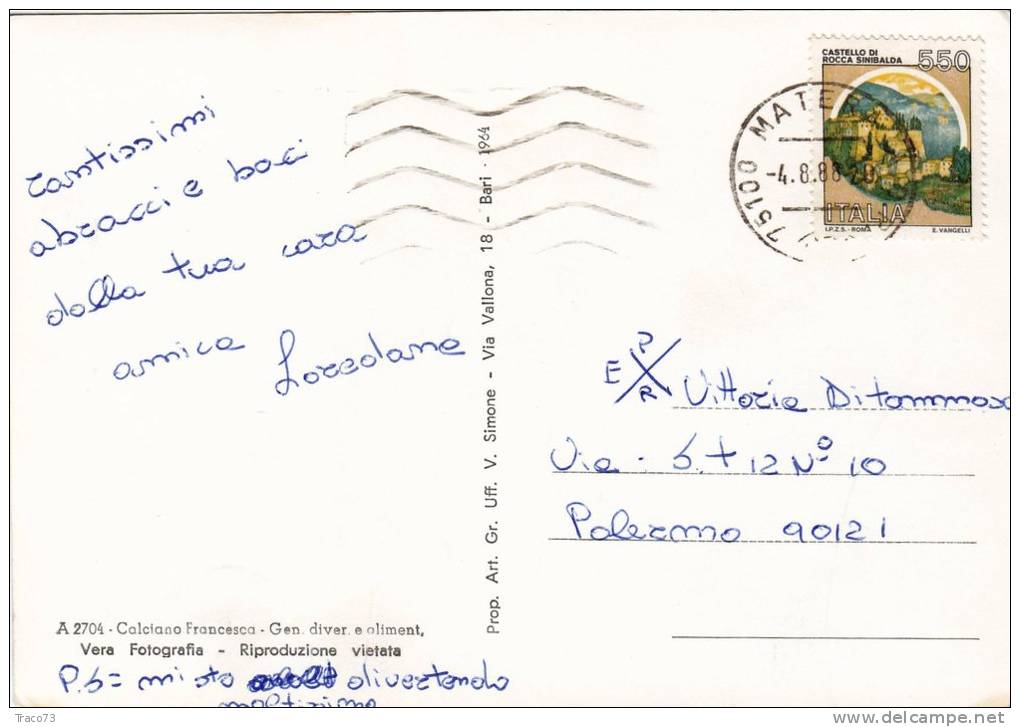 tantissimi
abracci e baci
dalla tua cara
amica Loredana
A 2704 - Calciano Francesca - Gen. diver. e aliment,
Vera Fotografia - Riproduzione vietata
P.S = mi sto divertendo
moltissimo
Prop. Art. Gr. Uff. V. Simone - Via Vallona, 18 - Bari - 1964
CASTELLO DI
ROCCA SINIBALDA
550
ITALIA
I.P.Z.S. - ROMA E. VANGELLI
75100 MATERA
-4.8.88
E P/R Vittoria Ditommaso
Via - S. + 12 N° 10
Palermo 90121
Traco73
www.delcampe.net